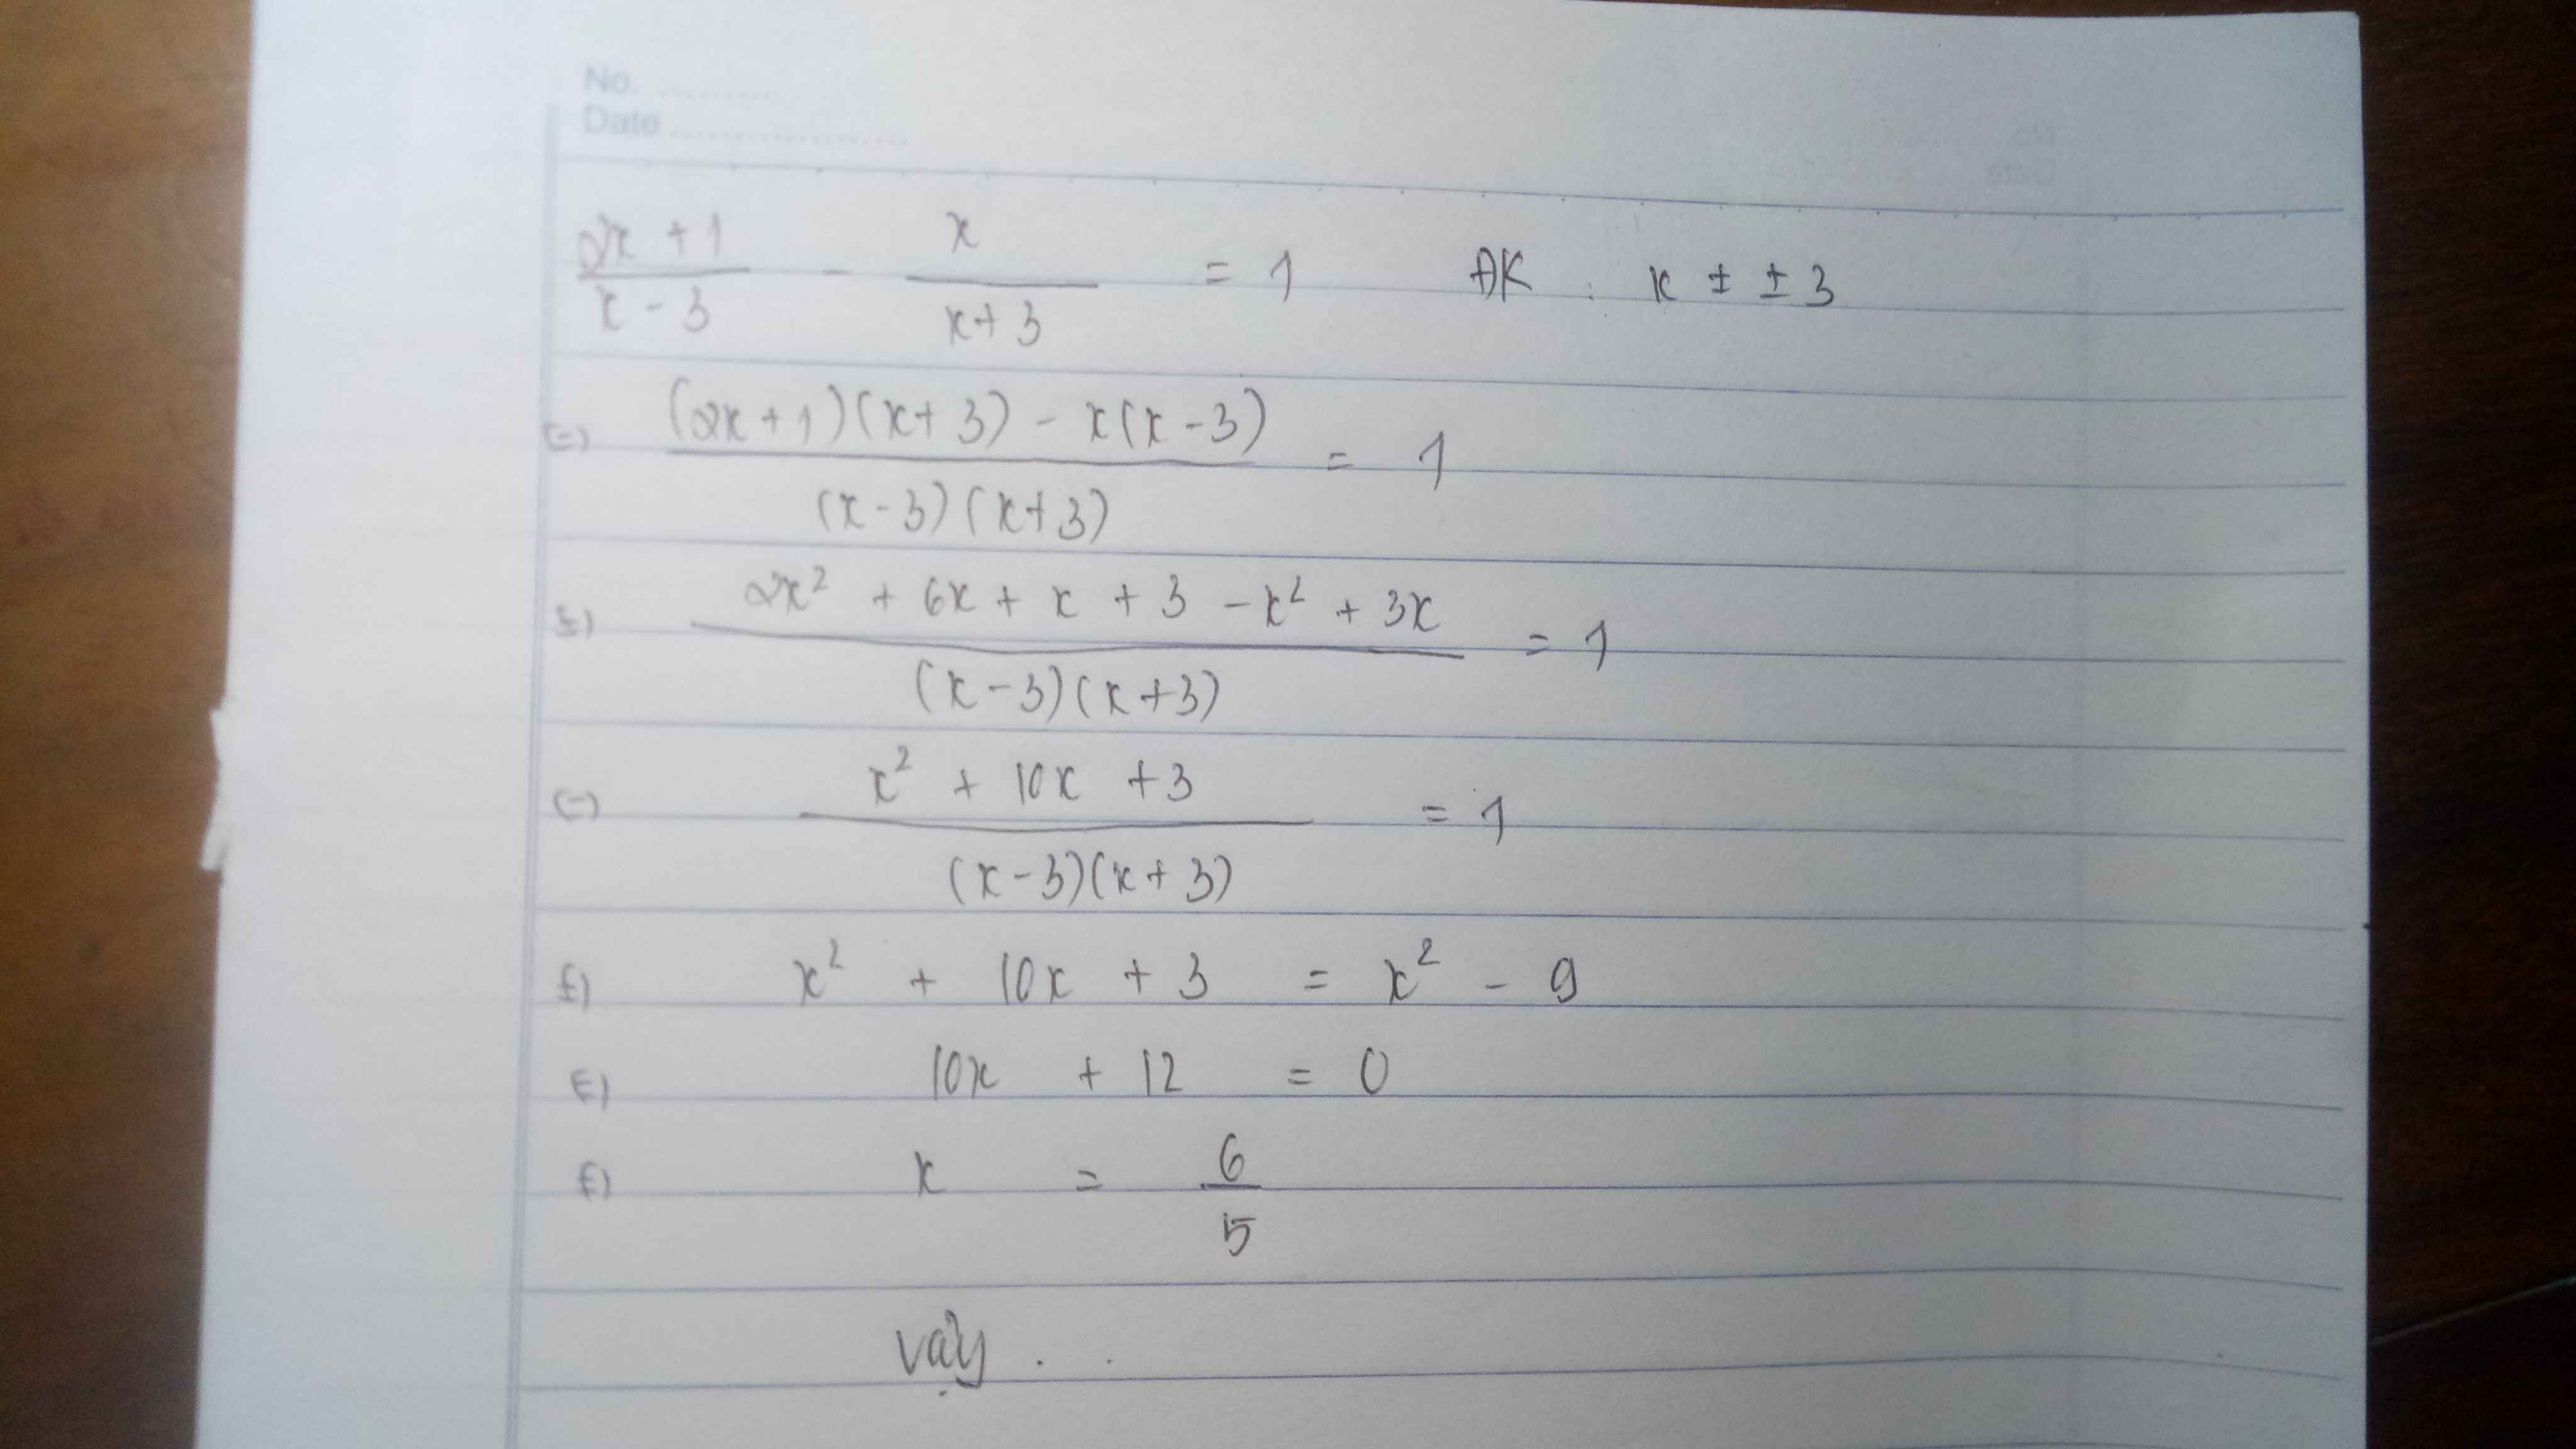 No. ............
Date ........................
(2x + 1)/(x - 3) - x/(x + 3) = 1 ĐK : x ± ± 3
(=) ((2x + 1)(x + 3) - x(x - 3))/((x - 3)(x + 3)) = 1
(=) (2x² + 6x + x + 3 - x² + 3x)/((x - 3)(x + 3)) = 1
(=) (x² + 10x + 3)/((x - 3)(x + 3)) = 1
(=) x² + 10x + 3 = x² - 9
(=) 10x + 12 = 0
(=) x = 6/5
Vậy . .